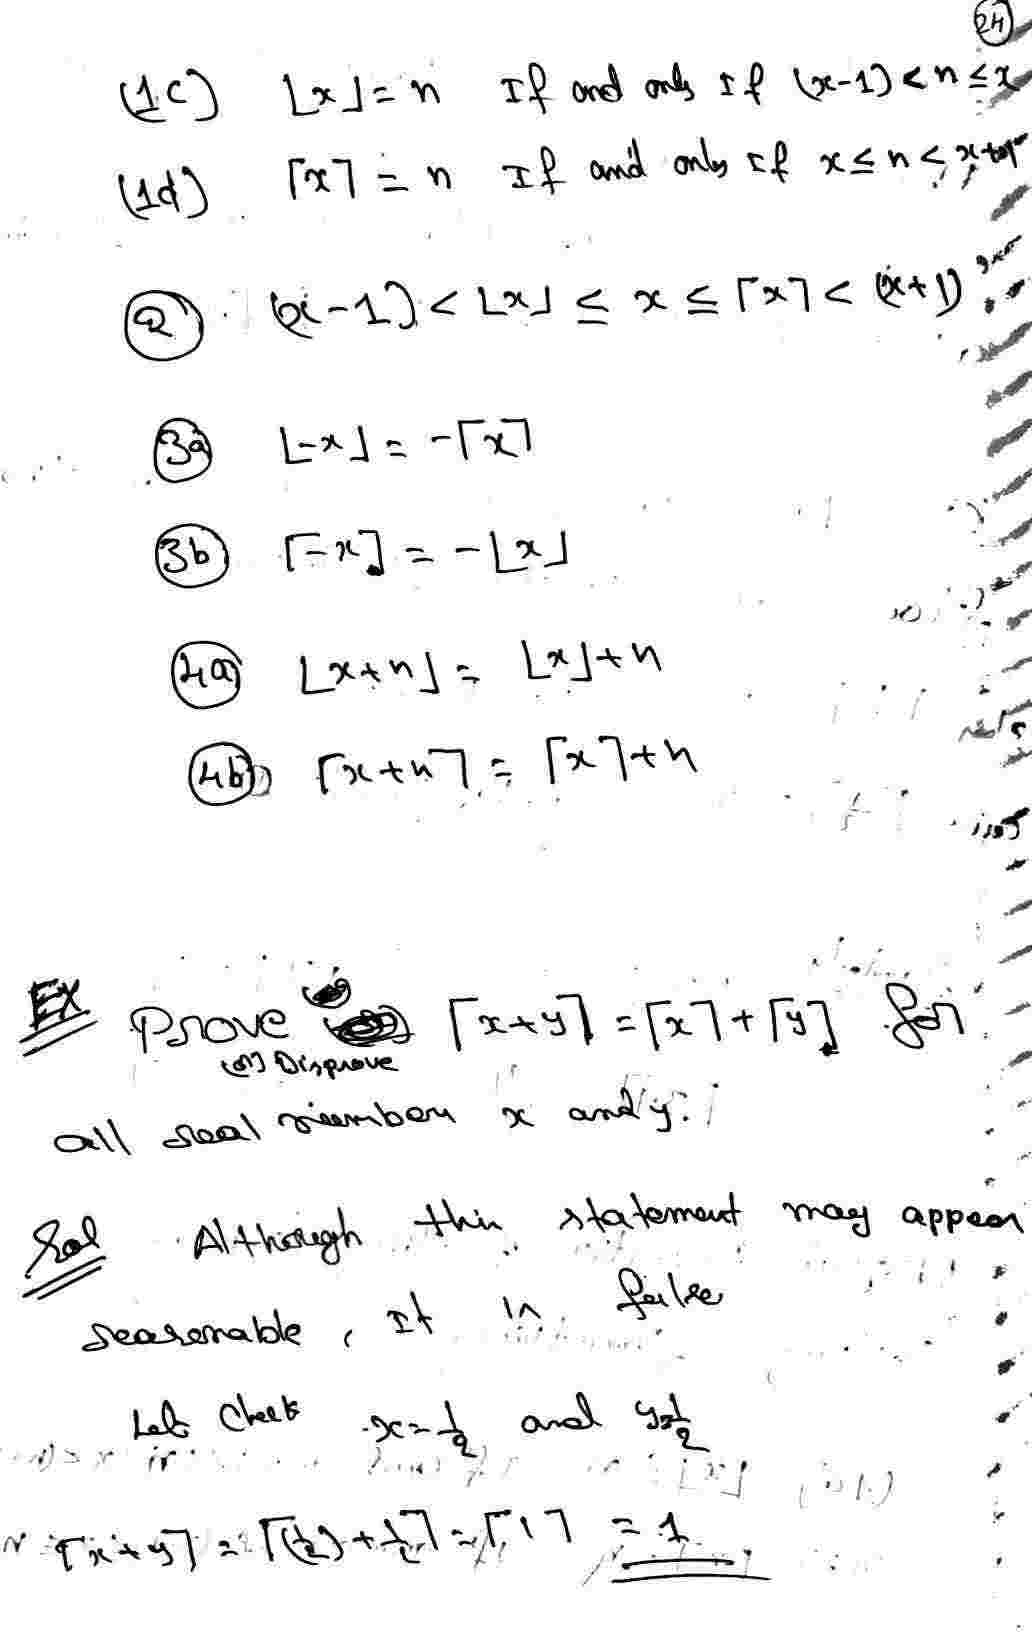 24
(1c) ⌊x⌋ = n If and only If (x-1) < n ≤ x
(1d) ⌈x⌉ = n If and only If x ≤ n < x+1
2 (x-1) < ⌊x⌋ ≤ x ≤ ⌈x⌉ < (x+1)
3a ⌊-x⌋ = -⌈x⌉
3b ⌈-x⌉ = -⌊x⌋
4a ⌊x+n⌋ = ⌊x⌋+n
4b) ⌈x+n⌉ = ⌈x⌉+n
EX Prove ⌈x+y⌉ = ⌈x⌉+⌈y⌉ for
(or) Disprove
all real number x and y.
Sol Although this statement may appear
reasonable, It is false
Let check x=1/2 and y=1/2
⌈x+y⌉ = ⌈(1/2)+1/2⌉ = ⌈1⌉ = 1